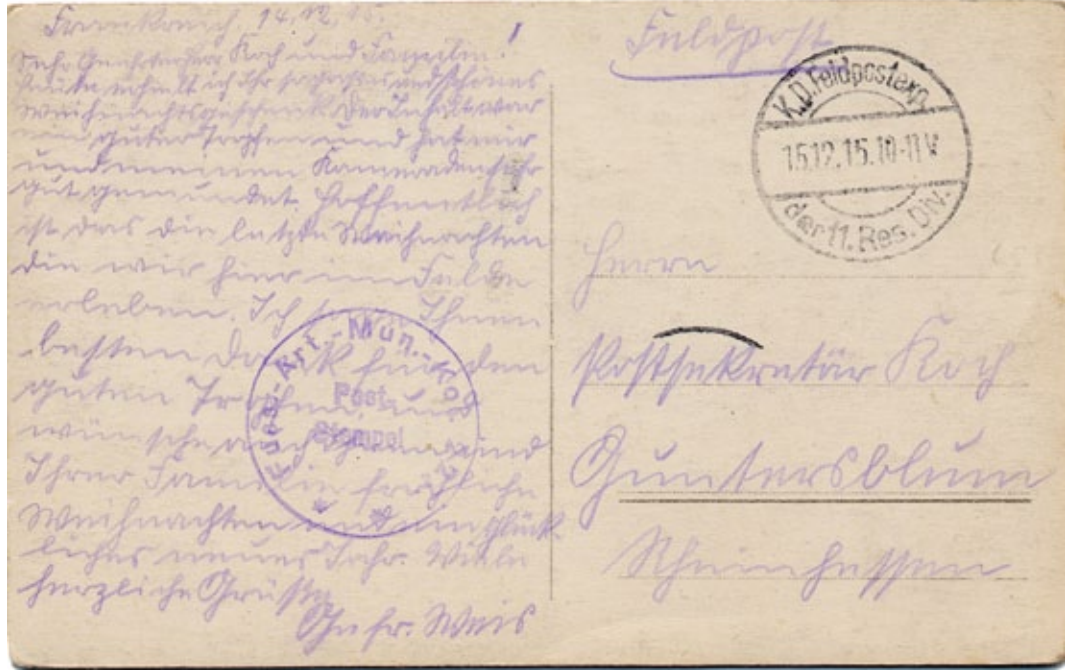 Frankreich, 14.12.15.
Sehr Geehrter Herr Koch und Familie!
Heute erhielt ich Ihr und schönes
Weihnachtsgeschenk. Der Inhalt war
ein guter Tropfen und hat mir
und meinen Kameraden sehr
gut gemundet. Hoffentlich
ist das die letzte Weihnachten
die wir hier im Felde
erleben. Ich Ihnen
besten Dank für den
guten Tropfen und
wünsche auch Ihnen und
Ihrer Familie fröhliche
Weihnachten und ein glück-
liches neues Jahr. Viele
herzliche Grüße
Gefr. Weis
Art.-Mun.-Kol.
Post-
Stempel
Feldpost
K.D.Feldpostexp.
15.12.15.10-11V
der 11. Res. Div.
Herrn
Postsekretär Koch
Guntersblum
Rheinhessen